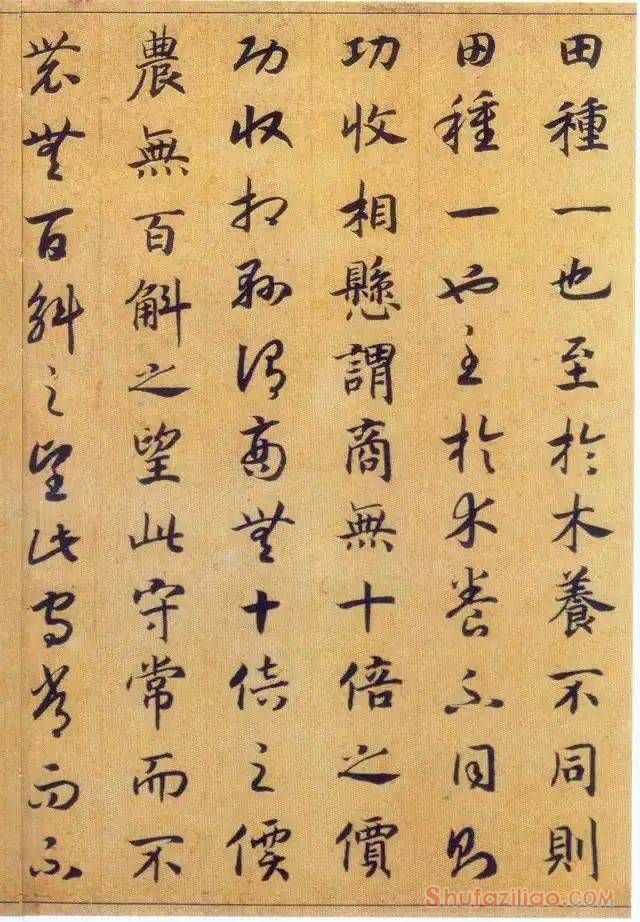 田種一也至於木養不同則
田種一也至於木養不同則
功收相懸謂商無十倍之價
功收相懸謂商無十倍之價
農無百斛之望此守常而不
農無百斛之望此守常而不
Shufaziliao.com